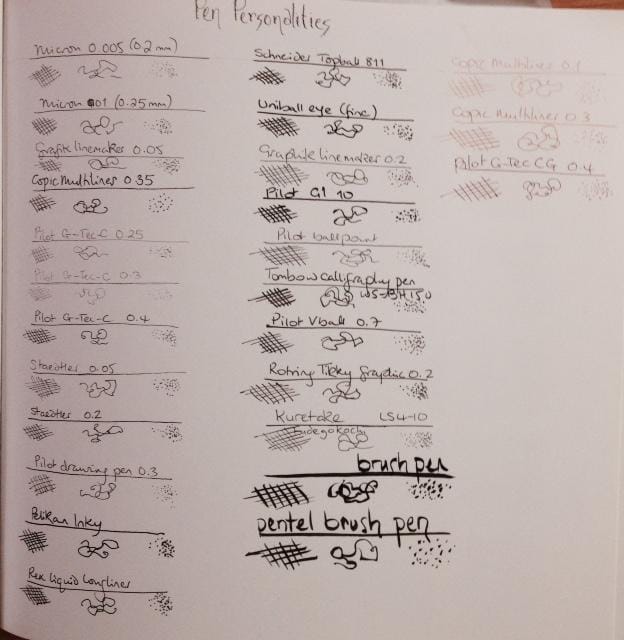 Pen Personalities
Micron 0.005 (0.2mm)
Micron 01 (0.25mm)
Grafik linemaker 0.05
Copic Multiliner 0.35
Pilot G-Tec-C 0.25
Pilot G-Tec-C 0.3
Pilot G-Tec-C 0.4
Staedtler 0.05
Staedtler 0.2
Pilot drawing pen 0.3
Pelikan Inky
Rex liquid
Schneider Topball 811
Uniball eye (fine)
Graphik linemaker 0.2
Pilot G1 10
Pilot ballpoint
Tombow calligraphy pen
Pilot Vball 0.7
Rotring Tikky Graphic 0.2
Kuretake LS4-10
brush pen
pentel brush pen
Copic Multiliner 0.1
Copic Multiliner 0.3
Pilot G-Tec CG 0.4